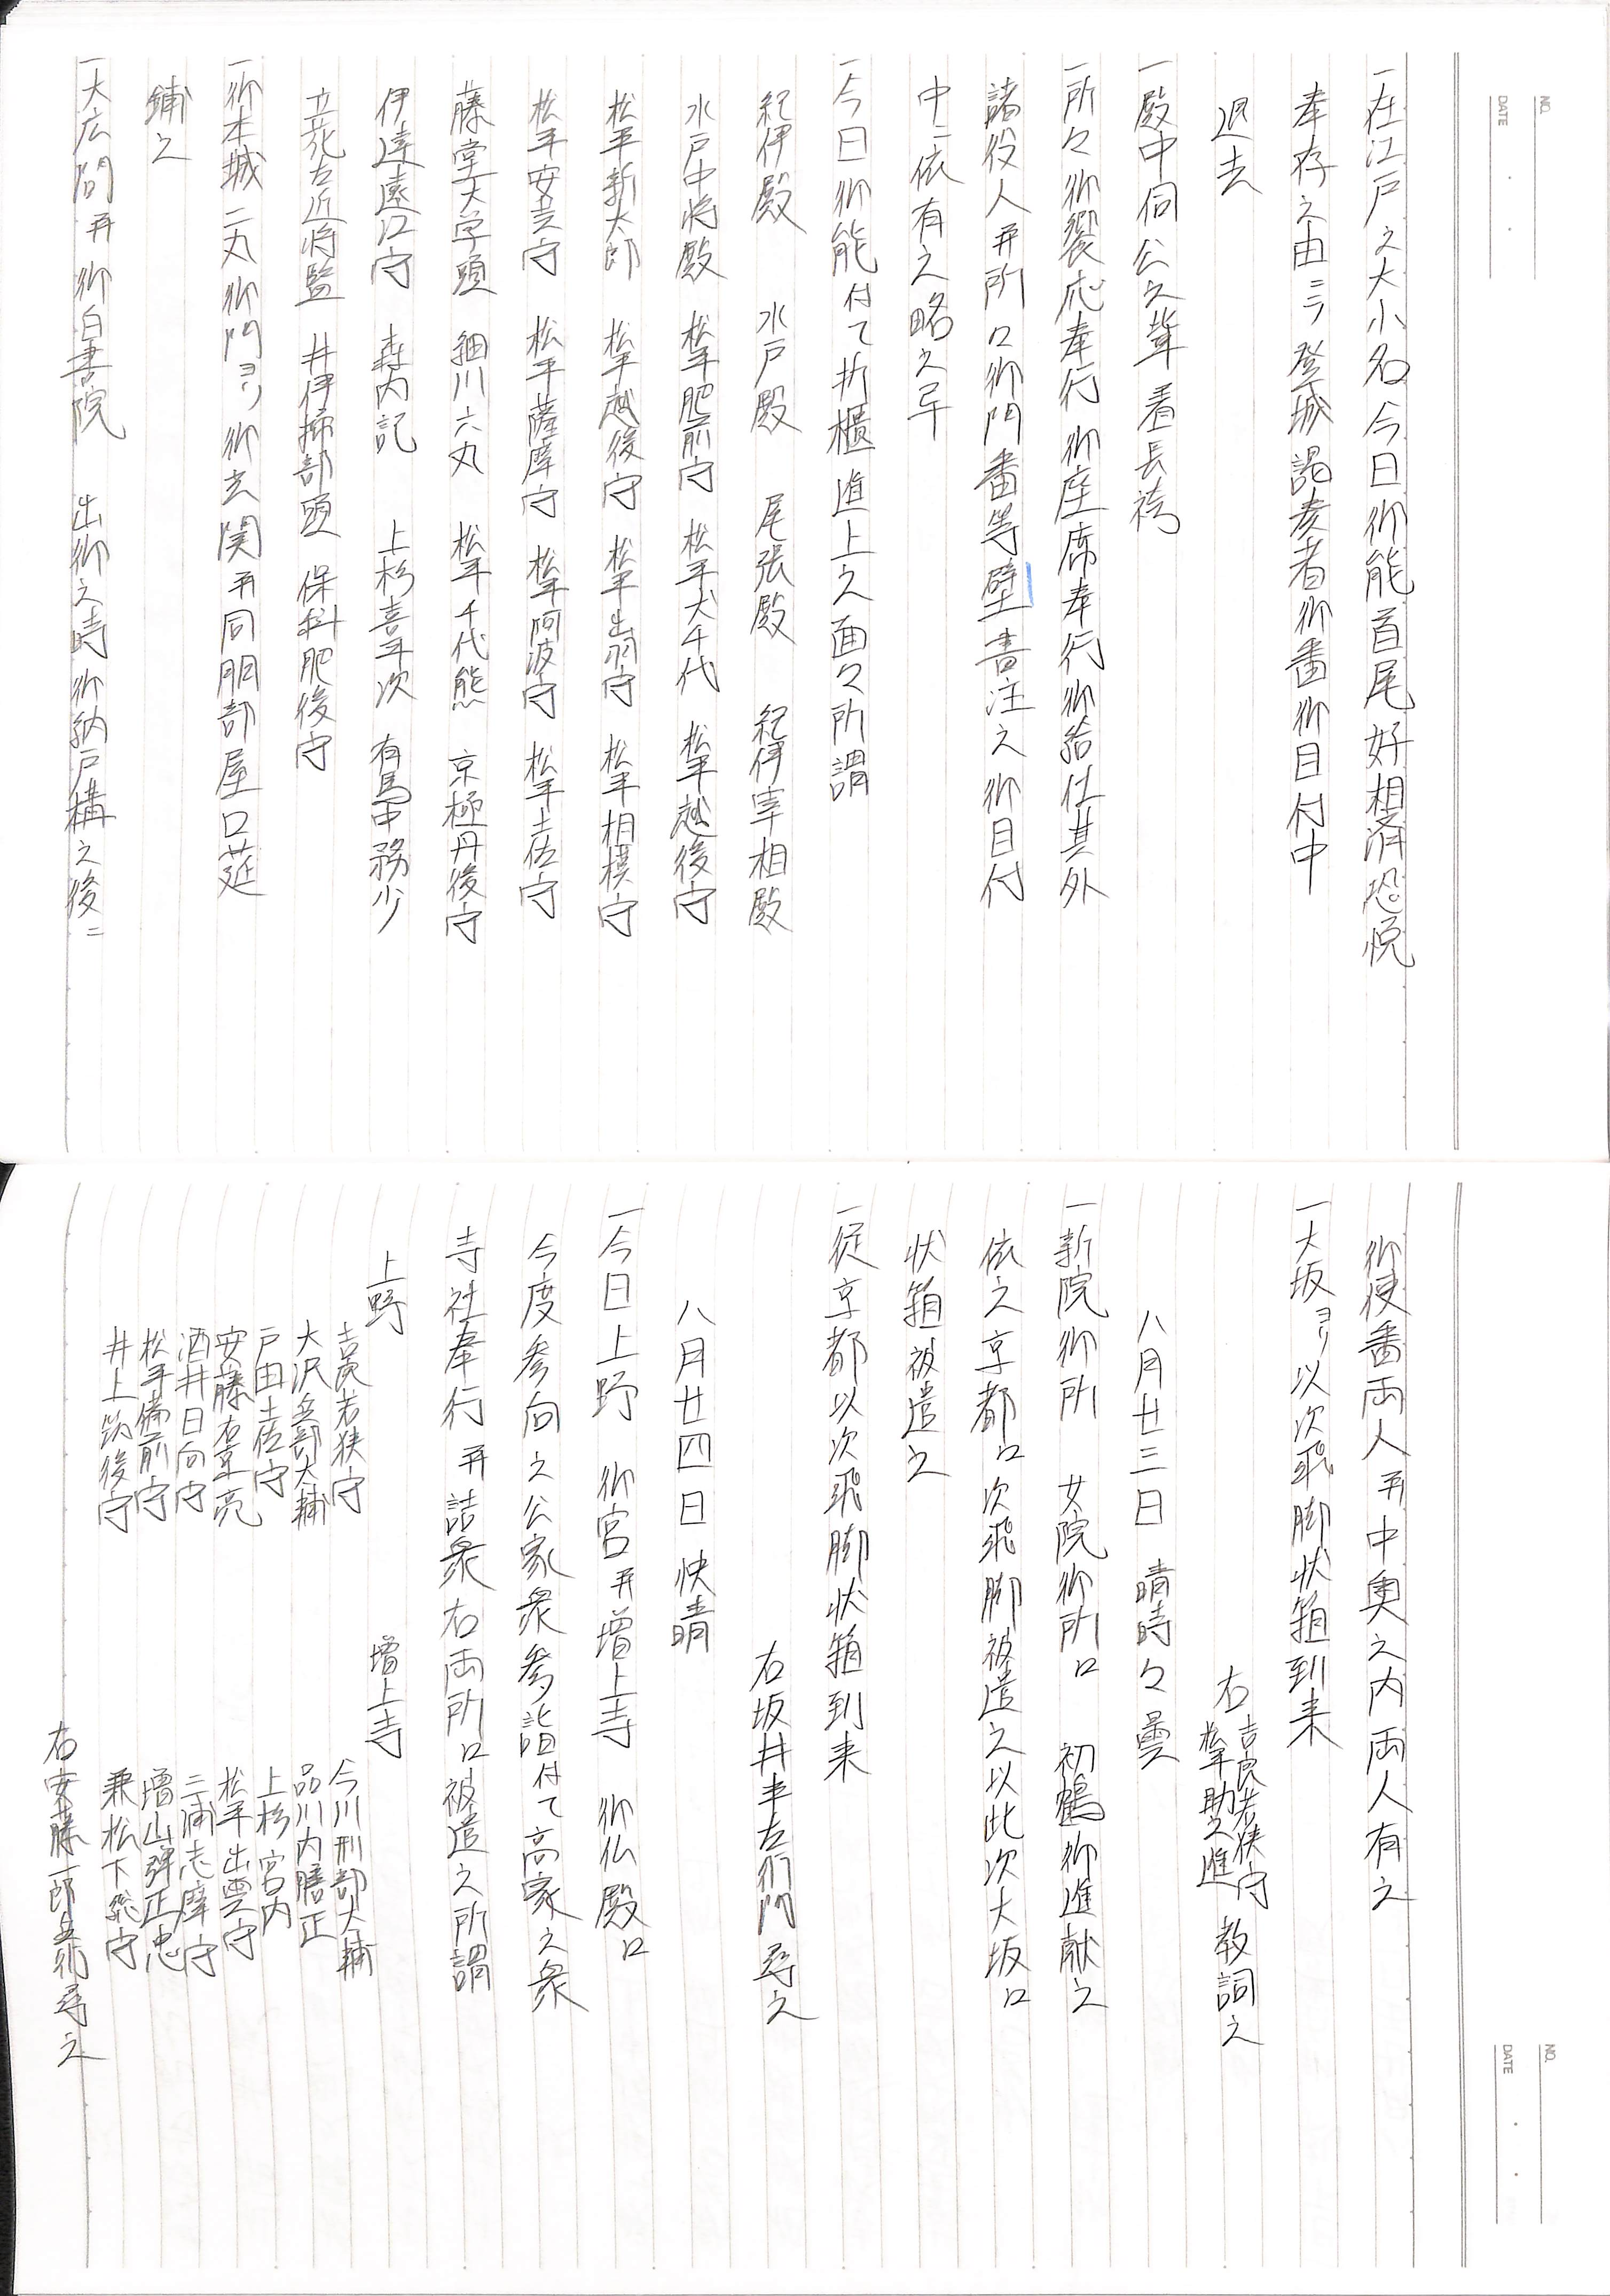 NO.
DATE
一在江戸之大小名今日御能首尾好相済恐悦
奉存之由ニテ登城謁奏者御番御目付中
退去
一殿中伺公之輩着長袴
一所々御饗応奉行御座席奉行御給仕其外
諸役人并所口御門番等壁書注之御目付
中ニ依有之略之畢
一今日御能付て折櫃進上之面々所謂
紀伊殿 水戸殿 尾張殿 紀伊宰相殿
水戸中将殿 松平肥前守 松平犬千代 松平越後守
松平新太郎 松平越後守 松平出羽守 松平相模守
松平安芸守 松平薩摩守 松平阿波守 松平土佐守
藤堂大学頭 細川六丸 松平千代熊 京極丹後守
伊達遠江守 森内記 上杉喜平次 有馬中務少
立花左近将監 井伊掃部頭 保科肥後守
一御本城二丸御門ヨリ御玄関并同朋部屋口莚
鋪之
一大広間并御白書院 出御之時御納戸構之後ニ
NO.
DATE
御使番両人并中奥之内両人有之
一大坂ヨリ以次飛脚状箱到来
右 吉良若狭守 松平助之進 教詞之
八月廿三日 晴時々曇
一新院御所 女院御所口 初鶴御進献之
依之京都口次飛脚被遣之以此次大坂口
状箱被遣之
一従京都以次飛脚状箱到来
右坂井半左衛門尋之
八月廿四日 快晴
一今日上野 御宮并増上寺 御仏殿口
今度参向之公家衆参詣付て高家之衆
寺社奉行并詰衆右両所口被遣之所謂
上野 増上寺
吉良若狭守 今川刑部大輔
大沢兵部大輔 品川内膳正
戸田土佐守 上杉宮内
安藤右京亮 松平出雲守
酒井日向守 三浦志摩守
松平備前守 増山弾正忠
井上筑後守 兼松下総守
右安藤一郎兵衛尋之